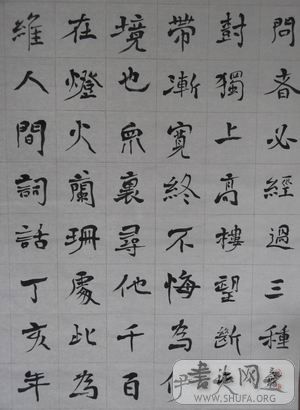 問者必經過三種
對獨上高樓望斷
帶漸寬終不悔為伊
境也眾裏尋他千百
在燈火蘭珊處此為
維人間詞話丁亥年
书法网
WWW.SHUFA.ORG